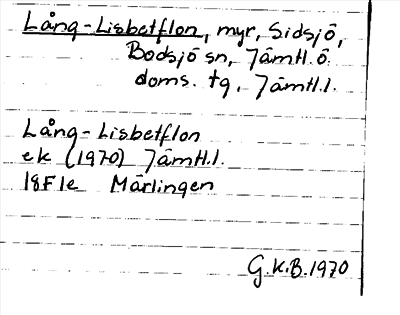 Lång-Lisbetflon, myr, Sidsjö,
Bodsjö sn, Jämtl. ö.
doms. tg, Jämtl.l.
Lång-Lisbetflon
ek (1970) Jämtl.l.
18F1e Märlingen
G.K.B. 1970